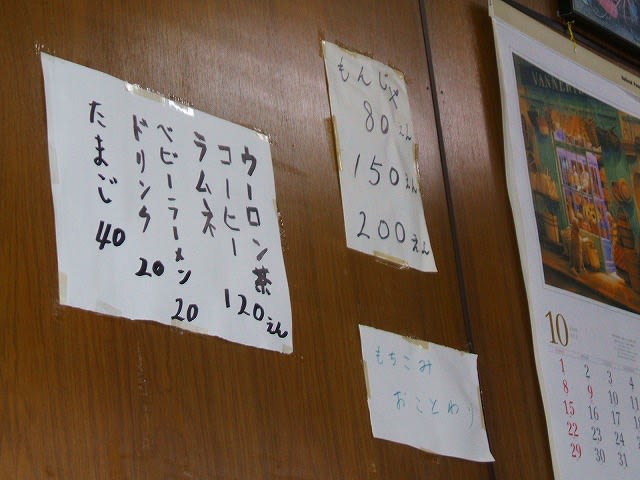 ウーロン茶
コーヒー 120えん
ラムネ
ベビーラーメン 20
ドリンク 20
たまご 40
もんじゃ
80えん
150えん
200えん
もちこみ
おことわり
10
1 2 3 4
8 9 10 11
15 16 17 18
22 23 24 25
29 30 31